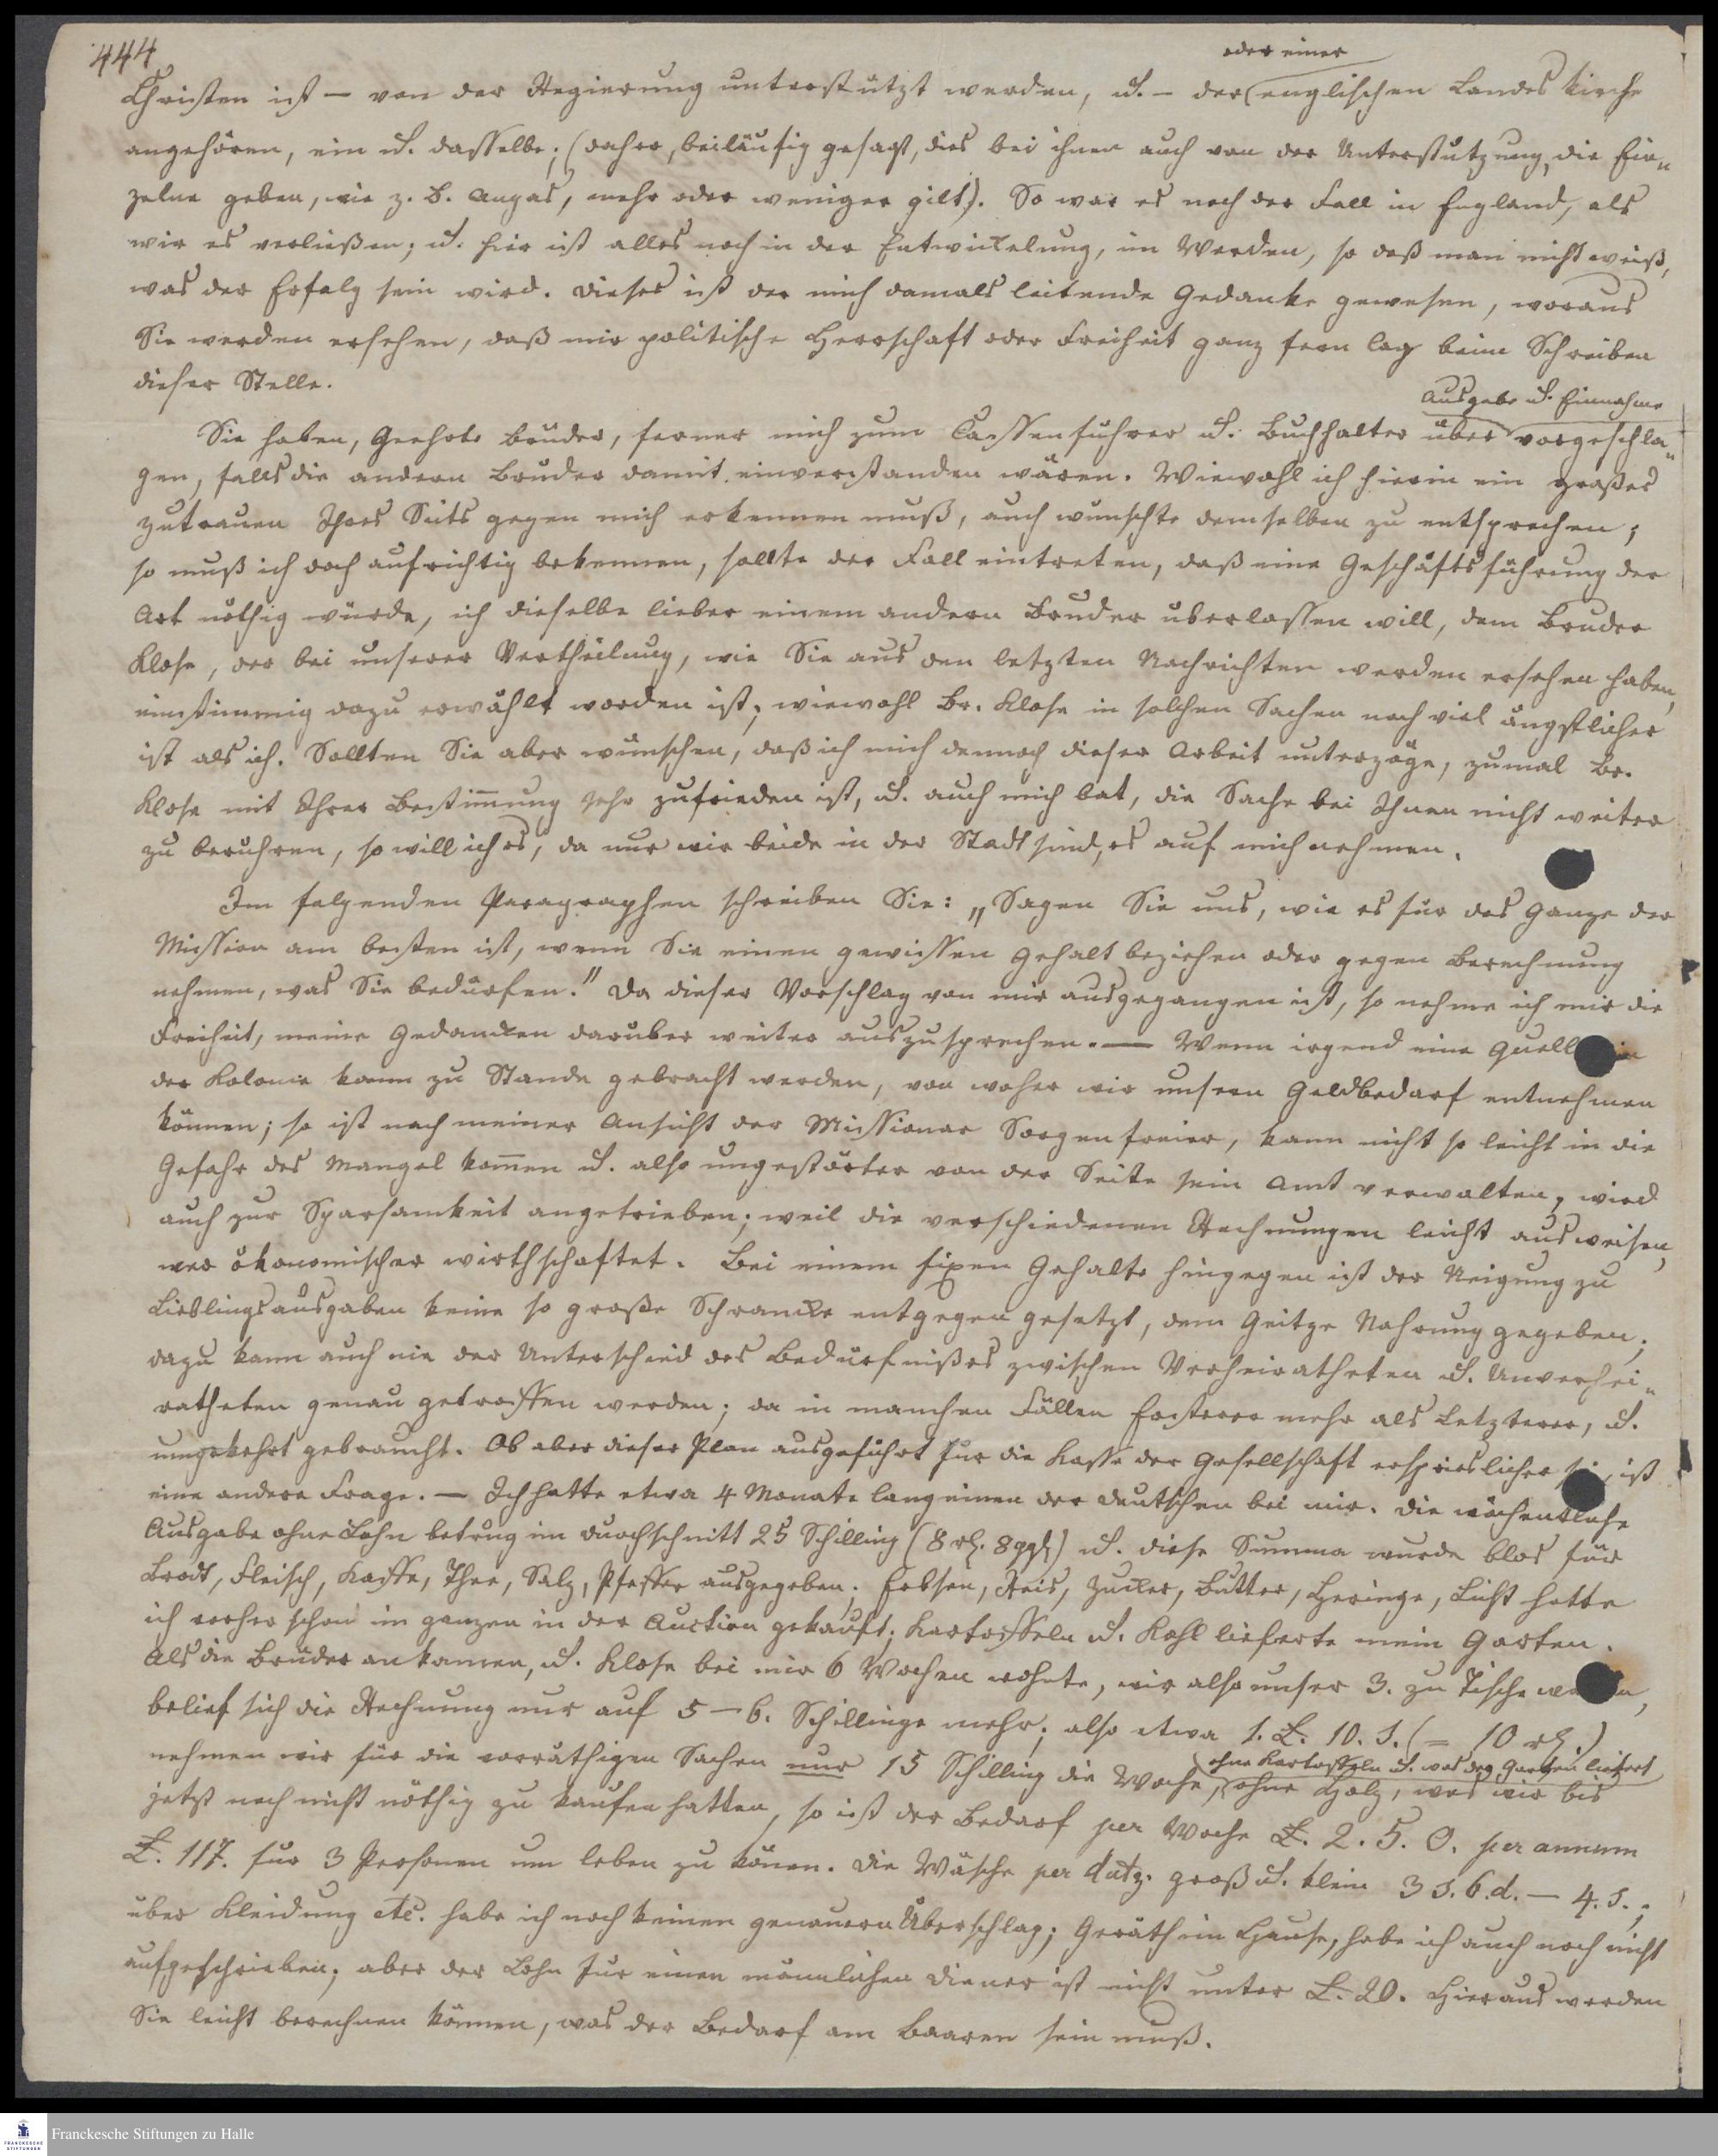 444
oder einer
Christen ist — von der Regierung unterstützt werden, u. — der englischen Landes kirche
angehören, ein u. dasselbe; (daher, beiläufig gesagt, dies bei ihnen auch von der Unterstützung, die Ein„
zelne geben, wie z. B. Angas, mehr oder weniger gilt). So war es noch der Fall in England, als
wir es verließen; u. hier ist alles noch in der Entwickelung, im Werden, so daß man nicht weiß,
was der Erfolg sein wird. Dieses ist der mich damals leitende Gedanke gewesen, woraus
Sie werden ersehen, daß mir politische Herrschaft oder Freiheit ganz fern lag beim Schreiben
dieser Stelle.
Ausgabe u. Einnahme
Sie haben, Geehrte Brüder, ferner mich zum Cassenführer u. Buchhalter über vorgeschla„
gen, falls die andern Brüder damit einverstanden wären. Wiewohl ich hierin ein großes
Zutrauen Ihrer Seits gegen mich erkennen muß, auch wünschte demselben zu entsprechen;
so muß ich doch aufrichtig bekennen, sollte der Fall eintreten, daß eine Geschäftsführung der
Art nöthig würde, ich dieselbe lieber einem andern Bruder überlassen will, dem Bruder
Klose, der bei unserer Vertheilung, wie Sie aus den letzten Nachrichten werden ersehen haben,
einstimmig dazu erwählt worden ist; wiewohl Br. Klose in solchen Sachen noch viel ängstlicher
ist als ich. Sollten Sie aber wünschen, daß ich mich dennoch dieser Arbeit unterzöge, zumal Br.
Klose mit Ihrer Bestimmung sehr zufrieden ist, u. auch mich bat, die Sache bei Ihnen nicht weiter
zu berühren, so will ich es, da nur wir beide in der Stadt sind, es auf mich nehmen.
Im folgenden Paragraphen schreiben Sie: „Sagen Sie uns, wie es für das Ganze der
Mission am besten ist, wenn Sie einen gewissen Gehalt beziehen oder gegen Berechnung
nehmen, was Sie bedürfen." Da dieser Vorschlag von mir ausgegangen ist, so nehme ich mir die
Freiheit, meine Gedancken darüber weiter auszusprechen. — Wenn irgend eine Quell in
der Kolonie kann zu Stande gebracht werden, von woher wir unsern Geldbedarf entnehmen
können; so ist nach meiner Ansicht der Missionar Sorgenfreier, kann nicht so leicht in die
Gefahr des Mangel kom̄en u. also ungestörter von der Seite sein Amt verwalten, wird
auch zur Sparsamkeit angetrieben; weil die verschiedenen Rechnungen leicht ausweisen,
wer ökonomischer wirthschaftet. Bei einem fixen Gehalte hingegen ist der Neigung zu
Lieblingsausgaben keine so große Schrancke entgegen gesetzt, dem Geitze Nahrung gegeben;
dazu kann auch nie der Unterschied des Bedürfnißes zwischen Verheiratheten u. Unverhei„
ratheten genau getroffen werden; da in manchen Fällen Ersterer mehr als Letzterer, u.
umgekehrt gebraucht. Ob aber dieser Plan ausgeführt für die Kasse der Gesellschaft ersprieslicher , ist
eine andere Frage. — Ich hatte etwa 4 Monate lang einen der Deutschen bei mir. Die wöchentliche
Ausgabe ohne Lohn betrug im Durchschnitt 25 Schilling (8 rl. 8 ggl) u. diese Summa wurde blos für
Brodt, Fleisch, Kaffe, Thee, Salz, Pfeffer ausgegeben; Erbsen, Reis, Zucker, Butter, Heringe, Licht hatte
ich vorher schon im ganzen in der Auction gekauft; Kartoffeln u. Kohl lieferte mein Garten.
Als die Brüder ankamen, u. Klose bei mir 6 Wochen wohnte, wir also unser 3. zu Tische w n,
belief sich die Rechnung nur auf 5 — 6. Schillinge mehr; also etwa 1. £. 10. s. (= 10 rl.)
ohne Kartoffeln u. was der Garten liefert
nehmen wir für die vorräthigen Sachen nur 15 Schilling die Woche, ohne Holz, was wir bis
jetzt noch nicht nöthig zu kaufen hatten, so ist der Bedarf per Woche £. 2. 5. 0. per annum
£. 117. für 3 Personen um leben zu könen. Die Wäsche per dutz. groß u. klein 3 s. 6. d. — 4. s.;
über Kleidung etc. habe ich noch keinen genauern Überschlag; Geräth im Hause, habe ich auch noch nicht
aufgeschrieben; aber der Lohn für einen männlichen Diener ist nicht unter £. 20. Hieraus werden
Sie leicht berechnen können, was der Bedarf am Baaren sein muß.
FRANCKESCHE STIFTUNGEN
Franckesche Stiftungen zu Halle